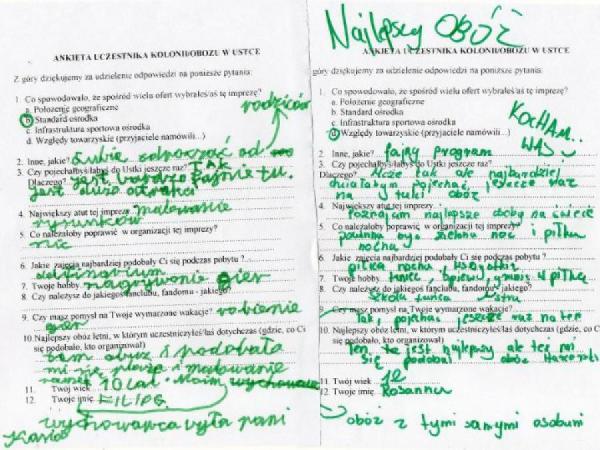 ANKIETA UCZESTNIKA KOLONII/OBOZU W USTCE
Z góry dziękujemy za udzielenie odpowiedzi na poniższe pytania:
1. Co spowodowało, że spośród wielu ofert wybrałeś/aś tę imprezę?
a. Położenie geograficzne
b. Standard ośrodka
c. Infrastruktura sportowa ośrodka
d. Względy towarzyskie (przyjaciele namówili...)
2. Inne, jakie? Lubie odpocząć od rodziców
3. Czy pojechałbyś/łabyś do Ustki jeszcze raz? TAK
Dlaczego? jest bardzo fajnie tu.
jest dużo
4. Największy atut tej imprezy malowanie
rysunków
5. Co należałoby poprawić w organizacji tej imprezy?
nic
6. Jakie zajęcia najbardziej podobały Ci się podczas pobytu?
7. Twoje hobby nagrywanie gier
8. Czy należysz do jakiegoś fanclubu, fandomu - jakiego?
9. Czy masz pomysł na Twoje wymarzone wakacje? robienie
gier
10. Najlepszy obóz letni, w którym uczestniczyłeś/łaś dotychczas (gdzie, co Ci
się podobało, kto organizował)
tam obuz i podobała
mi się plaża i malowanie
11. Twój wiek 10 lat. Moim wychowawca
12. Twoje imię FILIP
wychowawca była pani
Kasia
Najlepszy OBÓZ
ANKIETA UCZESTNIKA KOLONII/OBOZU W USTCE
góry dziękujemy za udzielenie odpowiedzi na poniższe pytania:
1. Co spowodowało, że spośród wielu ofert wybrałeś/aś tę imprezę?
a. Położenie geograficzne
b. Standard ośrodka
c. Infrastruktura sportowa ośrodka
d. Względy towarzyskie (przyjaciele namówili...)
KOCHAM..
WAS
2. Inne, jakie? fajny program
3. Czy pojechałbyś/łabyś do Ustki jeszcze raz?
Dlaczego? Może tak ale najbardziej
chciałabym pojechać jeszcze raz
na obóz
4. Największy atut tej imprezy
Poznałam najlepsze osoby na świecie
5. Co należałoby poprawić w organizacji tej imprezy?
powinna być zielona noc i piłka
nożna
6. Jakie zajęcia najbardziej podobały Ci się podczas pobytu?
piłka nożna wszystkie
7. Twoje hobby taniec, śpiewy, w piłkę
8. Czy należysz do jakiegoś fanclubu, fandomu - jakiego?
szkoła tańca
9. Czy masz pomysł na Twoje wymarzone wakacje?
Tak, pojechać jeszcze raz na ten
10. Najlepszy obóz letni, w którym uczestniczyłeś/łaś dotychczas (gdzie, co Ci
się podobało, kto organizował)
Ten tu jest najlepszy ale też mi
się podobał obóz Harcerski
11. Twój wiek 12
12. Twoje imię Rosanna
obóz z tymi samymi osobami